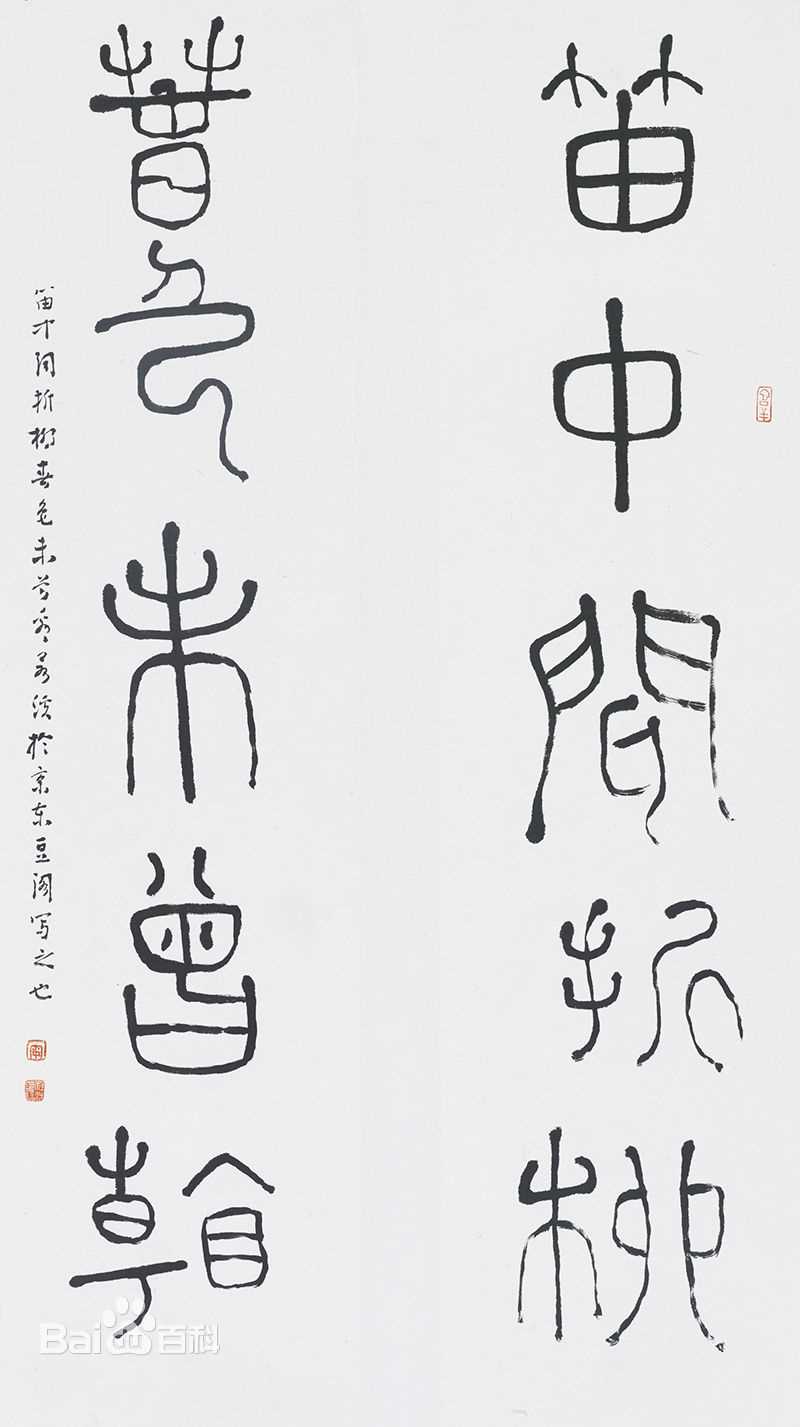 笛中聞折柳
春色未曾看
笛中闻折柳春色未曾看 於京东豆阁写之也
Bai百科